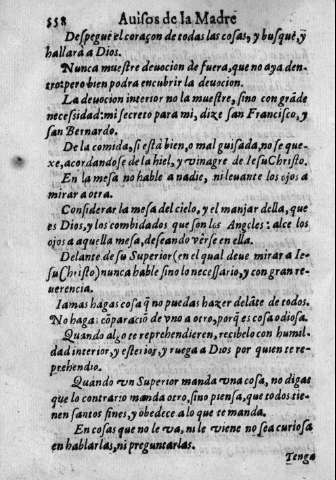 558 Auisos de la Madre
Despegue el coraçon de todas las cosas, y busque, y
hallarà a Dios.
Nunca muestre deuocion de fuera, que no aya den-
tro: pero bien podra encubrir la deuocion.
La deuocion interior no la muestre, sino con grãde
necessidad: mi secreto para mi, dize san Francisco, y
san Bernardo.
De la comida, si està bien, o mal guisada, no se que-
xe, acordandose de la hiel, y vinagre de Iesu Christo.
En la mesa no hable a nadie, ni leuante los ojos a
mirar a otra.
Considerar la mesa del cielo, y el manjar della, que
es Dios, y los combidados que son los Angeles: alce los
ojos a aquella mesa, deseando verse en ella.
Delante de su Superior (en el qual deue mirar a Ie-
su Christo) nunca hable sino lo necessario, y con gran re-
uerencia.
Iamas hagas cosa q̃ no puedas hazer delãte de todos.
No haga: cõparaciõ de vno a otro, porq̃ es cosa odiosa.
Quando algo te reprehendieren, recibelo con humil-
dad interior, y esterior, y ruega a Dios por quien te re-
prehendio.
Quando vn Superior manda vna cosa, no digas
que lo contrario manda otro, sino piensa, que todos tie-
nen santos fines, y obedece a lo que te manda.
En cosas que no le va, ni le viene no sea curiosa
en hablarlas, ni preguntarlas.
Tenga